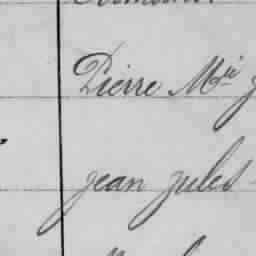 Pierre Mie
jean jules